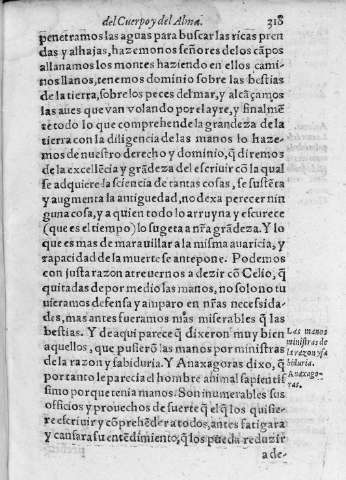 del Cuerpo y del Alma. 318
penetramos las aguas para buſcar las ricas pren
das y alhajas, hazemonos ſeñores delos cãpos
allanamos los montes haziendo en ellos cami-
nos llanos, tenemos dominio ſobre las beſtias
de la tierra, ſobre los peces del mar, y alcãçamos
las aues que van volando por el ayre, y finalmẽ
te todo lo que comprehende la grandeza de la
tierra con la diligencia de las manos lo haze-
mos de nueſtro derecho y dominio, q̃ diremos
de la excellẽcia y grãdeza del eſcriuir cõ la qual
ſe adquiere la ſciencia de tantas coſas, ſe ſuſtẽta
y augmenta la antiguedad, no dexa perecer nin
guna coſa, y a quien todo lo arruyna y eſcurece
(que es el tiempo) lo ſugeta a nr̃a grãdeza. Y lo
que es mas de marauillar a la miſma auaricia, y
rapacidad de la muerte ſe antepone. Podemos
con juſta razon atreuernos a dezir cõ Celio, q̃
quitadas de por medio las manos, no ſolo no tu
uieramos defenſa y amparo en nr̃as neceſsida-
des, mas antes fueramos mas miſerables q̃ las
beſtias. Y de aqui parece q̃ dixeron muy bien
aquellos, que puſierõ las manos por miniſtras
de la razon y ſabiduria. Y Anaxagoras dixo, q̃
por tanto le parecia el hombre animal ſapientiſ
ſimo porque tenia manos. Son inumerables ſus
officios y prouechos de ſuerte q̃ el q̃ los quiſie-
re eſcriuir y cõprehẽder a todos, antes fatigara
y canſara ſu entẽdimiento, q̃ los pueda reduzir
a de-
Las manos
miniſtras de
la razon y ſa
biduria.
Anaxago-
ras.